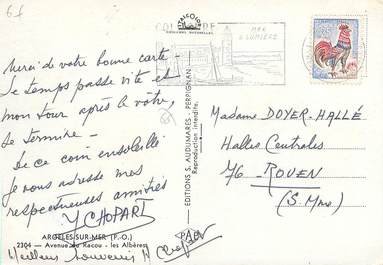 67
COLLIOURE
MER
& LUMIERE
Merci de votre bonne carte -
Le temps passe vite et
mon tour après le vôtre,
se termine -
De ce coin ensoleillé
Je vous adresse mes
respectueuses amitiés
YCHOPART
ARGELÈS-SUR-MER (P.-O.)
2304 — Avenue du Racou - les Albères
Meilleurs souvenirs
EDITIONS S. AUDUMARES - PERPIGNAN
Reproduction interdite.
Madame DOYER-HALLÉ
Halles Centrales
76 - ROUEN
(S. Mme)